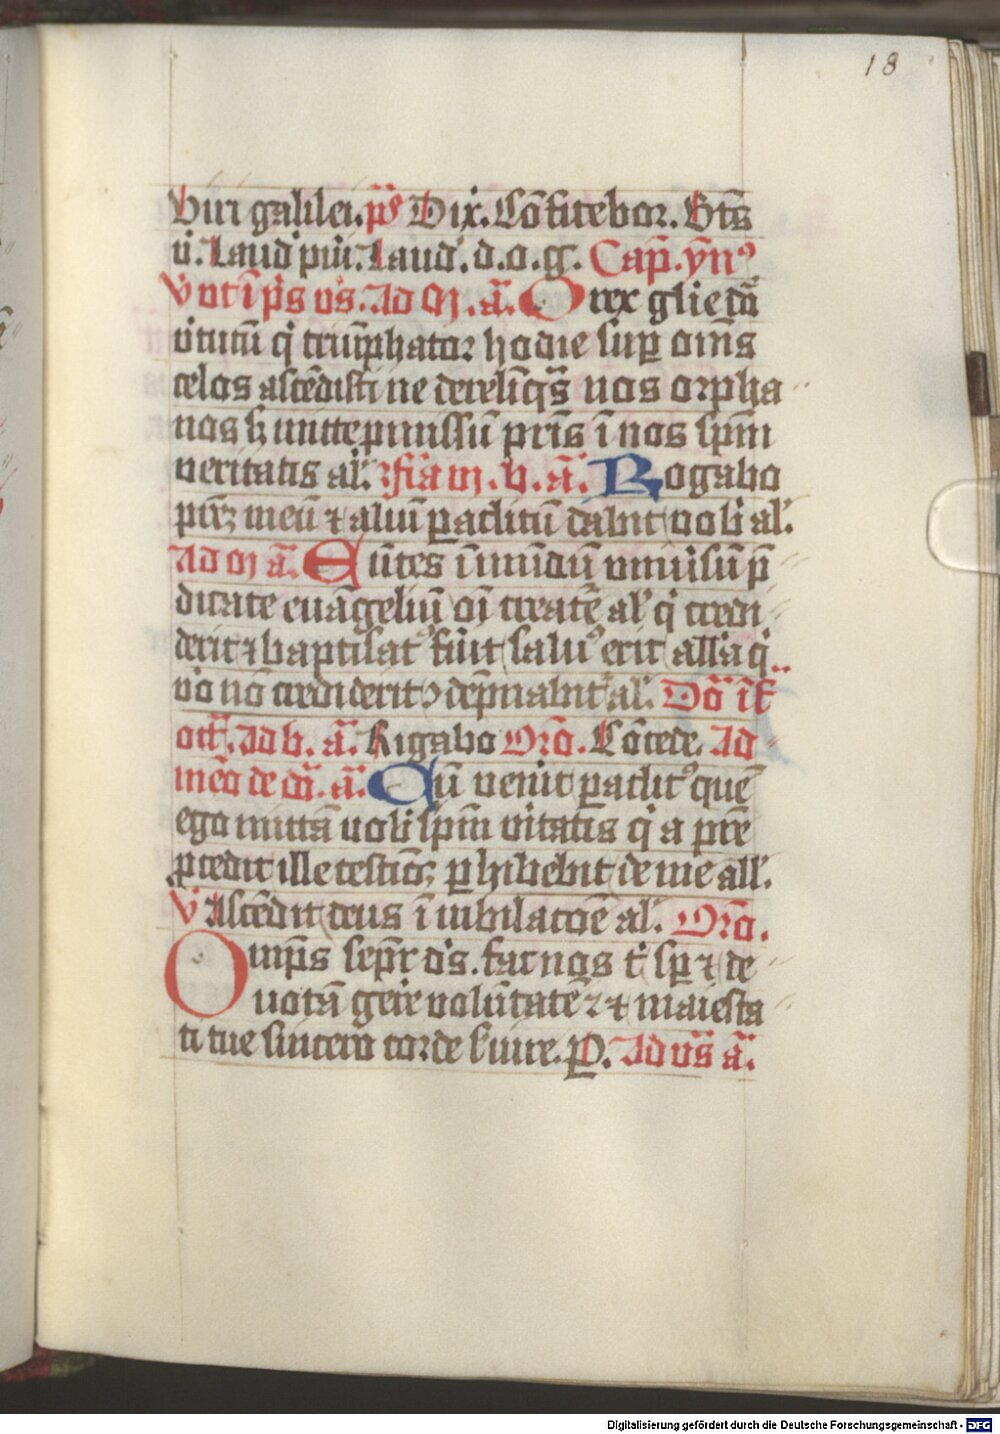 18
Viri galilei. ps̄ Dix. Cōfitebor. Bt̄s
v̄. Laud pūi. Laud. d. o. g. Cap̄. ymꝰ
V ut ī ps̄ vs̄. Ad M. ā. O rex glīe dn̄
v̄tutū q̄ triūphator hodie suꝑ om̄s
celos ascēdisti ne derelīqs̄ nos orpha
nos ꜩ mitte pmissū pr̄is ī nos sp̄m
veritatis al̄. fīa iij. b. ā. Rogabo
pr̄eꝫ meū ⁊ aliū ꝑaclitū dabit vob̄ al̄.
Ad m ā. Eūtes ī mūdū vniūsū p̄
dicate euāgeliū oī creatē al̄ q̄ credi
derit ⁊ baptisatꝰ fūit saluꝰ erit all̄a q̄
v̄o nō crediderit ꝯdēpnabit̄ al̄. Do̅ if̄
oct̄. Ad b. ā. Rigabo Orō. Cōcede. Ad
meō de dn̄. ā. Cū venit ꝑaclitꝰ quē
ego mittā vob̄ sp̄m v̄itatis q̄ a pr̄e
ꝓcedit ille testiōꝫ ꝑhibebit de me all̄.
V Ascēdit deus ī iubilacōe al̄. Orō.
Omps̄ sep̄r ds̄. fac nos t̄ sꝑ ⁊ de
uotā ger̄e volūtatē ⁊ ⁊ maiesta
ti tue sincero corde ẜuire. P. Ad vs̄ ā.
Digitalisierung gefördert durch die Deutsche Forschungsgemeinschaft - DFG